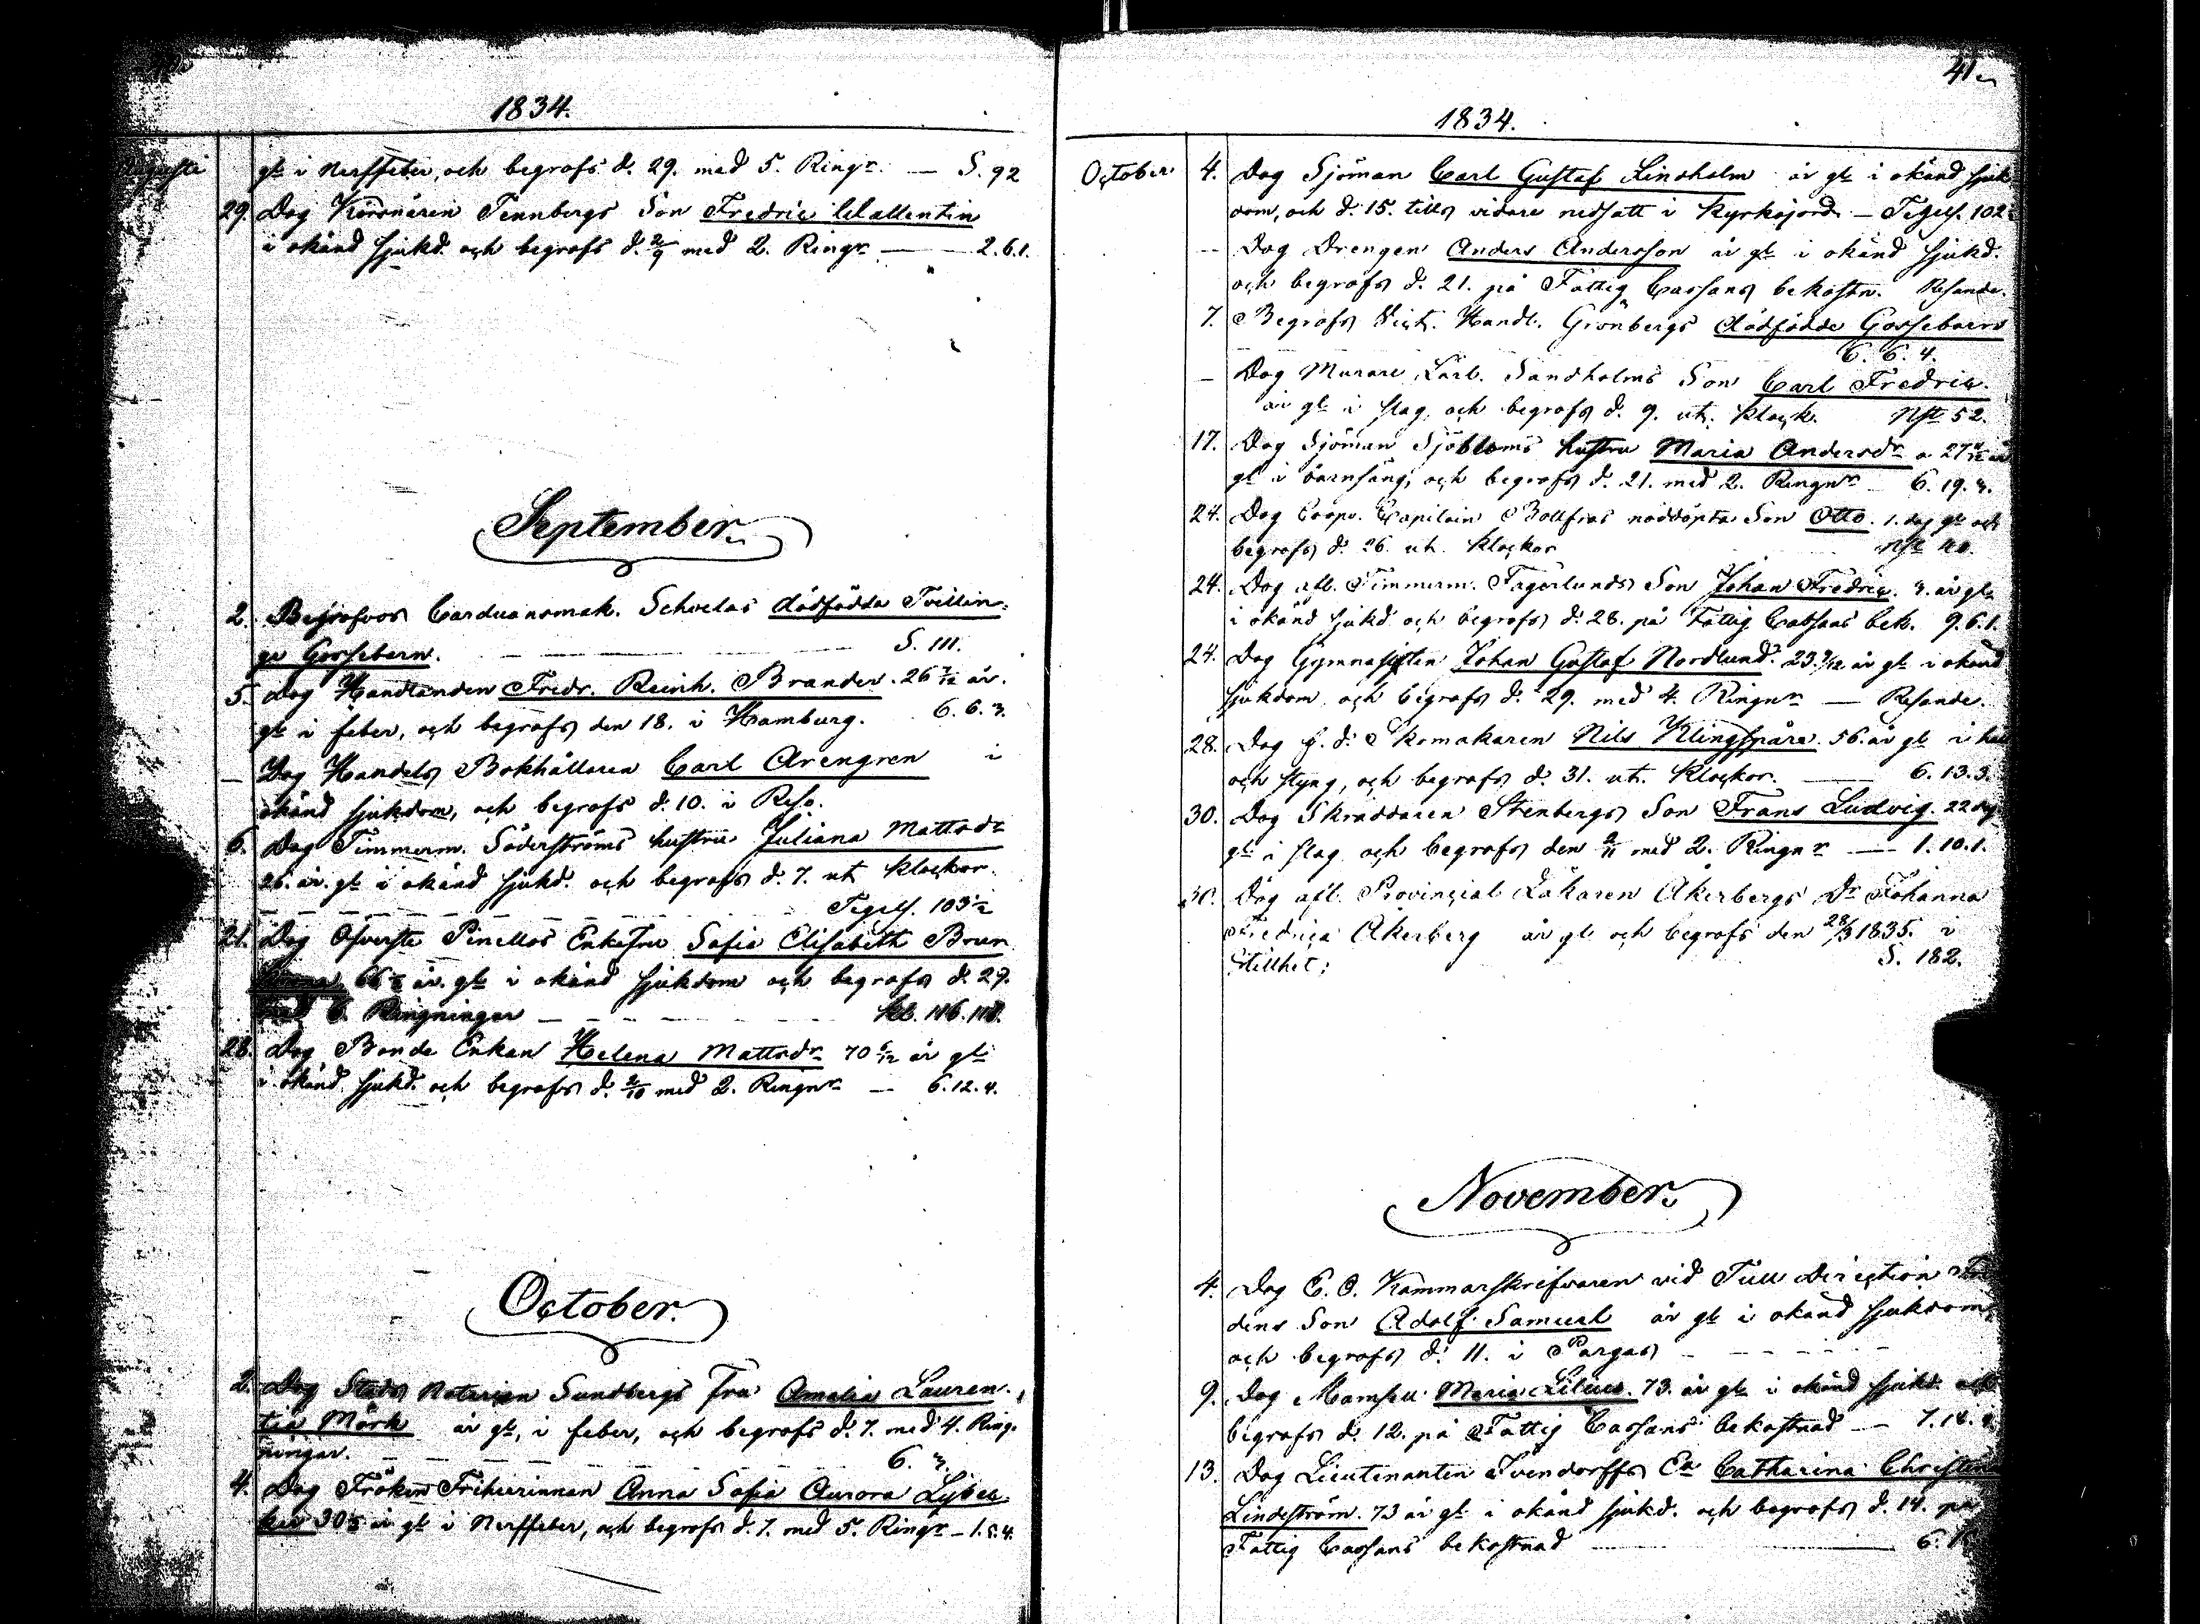 1834.
Augusti gl: i Nerffeber, och begrofs d. 29. med 5. Ringr. — S. 92
29. Dog Körsnären Tennbergs Son Fredric Wallentin
i okänd sjukd. och begrofs d. 2/9 med 2. Ringr — 2.6.1.
September
2. Begrofvos Carduansmak. Schoelas dödfödda Tvillin-
ge Gossebarn. S. 111.
5. Dog Handlanden Fredr. Reinh. Brander. 26 7/12 år.
gl: i feber, och begrofs den 18. i Hamburg. 6. 6. 3.
— Dog Handels Bokhållaren Carl Arengren i
okänd sjukdom, och begrofs d. 10. i Reso.
6. Dog Timmerm. Söderströms hustru Juliana Mattsdr
26. år. gl: i okänd sjukd. och begrofs d. 7. ut. klockor.
Tegelf. 103 1/2
21. Dog Öfverste Pinellos Enkefru Sofia Elisabeth Brun
66 år. gl: i okänd sjukdom och begrofs d. 29.
med Ringningar — kb. 116. 118.
28. Dog Bonde Enkan Helena Mattsdr 70 6/12 år gl:
i okänd sjukd. och begrofs d. 2/10 med 2. Ringnr — 6.12.4.
October.
2. Dog Stads Notarien Sundbergs Fru Amalia Lauren-
tia Mörk år gl, i feber, och begrofs d. 7. med 4. Ring-
ningar. 6. 3.
4. Dog Fröken Friherrinnan Anna Sofia Aurora Lybec-
ker 30 år gl: i Nerffeber, och begrofs d. 7. med 5. Ringr — 1.5.4.
41
1834.
October 4. Dog Sjöman Carl Gustaf Lindholm år gl: i okänd sjuk
dom, och d. 15. tills vidare nedsatt i kyrkojord. — Tegelf. 102
-- Dog Drengen Anders Andersson år gl: i okänd sjukd.
och begrofs d. 21. på Fattig Cassans bekostn. Resande.
7. Begrofs Vict. Handl. Grönbergs dödfödde Gossebarn
6. 6. 4.
— Dog Murare Lärl. Sandholms Son Carl Fredric.
år gl: i slag, och begrofs d. 9. ut. klock. Nst 52.
17. Dog Sjöman Sjöbloms hustru Maria Andersdr a 27 år
gl: i barnsäng, och begrofs d. 21. med 2. Ringnr — 6. 19. 3.
24. Dog Coopv. Capitain Bollfras nöddöpta Son Otto. 1. dag gl: och
begrofs d. 26. ut. klockor
24. Dog afl. Timmerm. Fagerlunds Son Johan Fredric. 3. år gl:
i okänd sjukd. och begrofs d. 28. på Fattig Cassans bek. 9.6.1.
24. Dog Gymnasisten Johan Gustaf Nordlund. 23 9/12 år gl: i okänd
sjukdom, och begrofs d. 29. med 4. Ringnr — Resande.
28. Dog f. d. Skomakaren Nils Klingspåre. 56. år gl: i
och styng, och begrofs d. 31. ut. klockor. — 6.13.3.
30. Dog Skraddaren Stenbergs Son Frans Ludvig. 22 dag
gl: i slag och begrofs den 2/11 med 2. Ringnr — 1.10.1.
30. Dog afl. Provincial Läkaren Åkerbergs Dr Johanna
Fredrica Åkerberg år gl: och begrofs den 28/3 1835. i
Stillhet; S. 182.
November
4. Dog E. O. Kammarskrifvaren vid Tull Direction
dens Son Adolf Samuel år gl: i okänd sjukdom,
och begrofs d. 11. i Pargas
9. Dog Mamsell Maria Lilius. 73. år gl: i okänd sjukd. och
begrofs d. 12. på Fattig Cassans bekostnad —
13. Dog Lieutenanten Ivendorffs Ea Catharina Christina
Lindström. 73 år gl: i okänd sjukd. och begrofs d. 14. på
Fattig Cassans bekostnad —